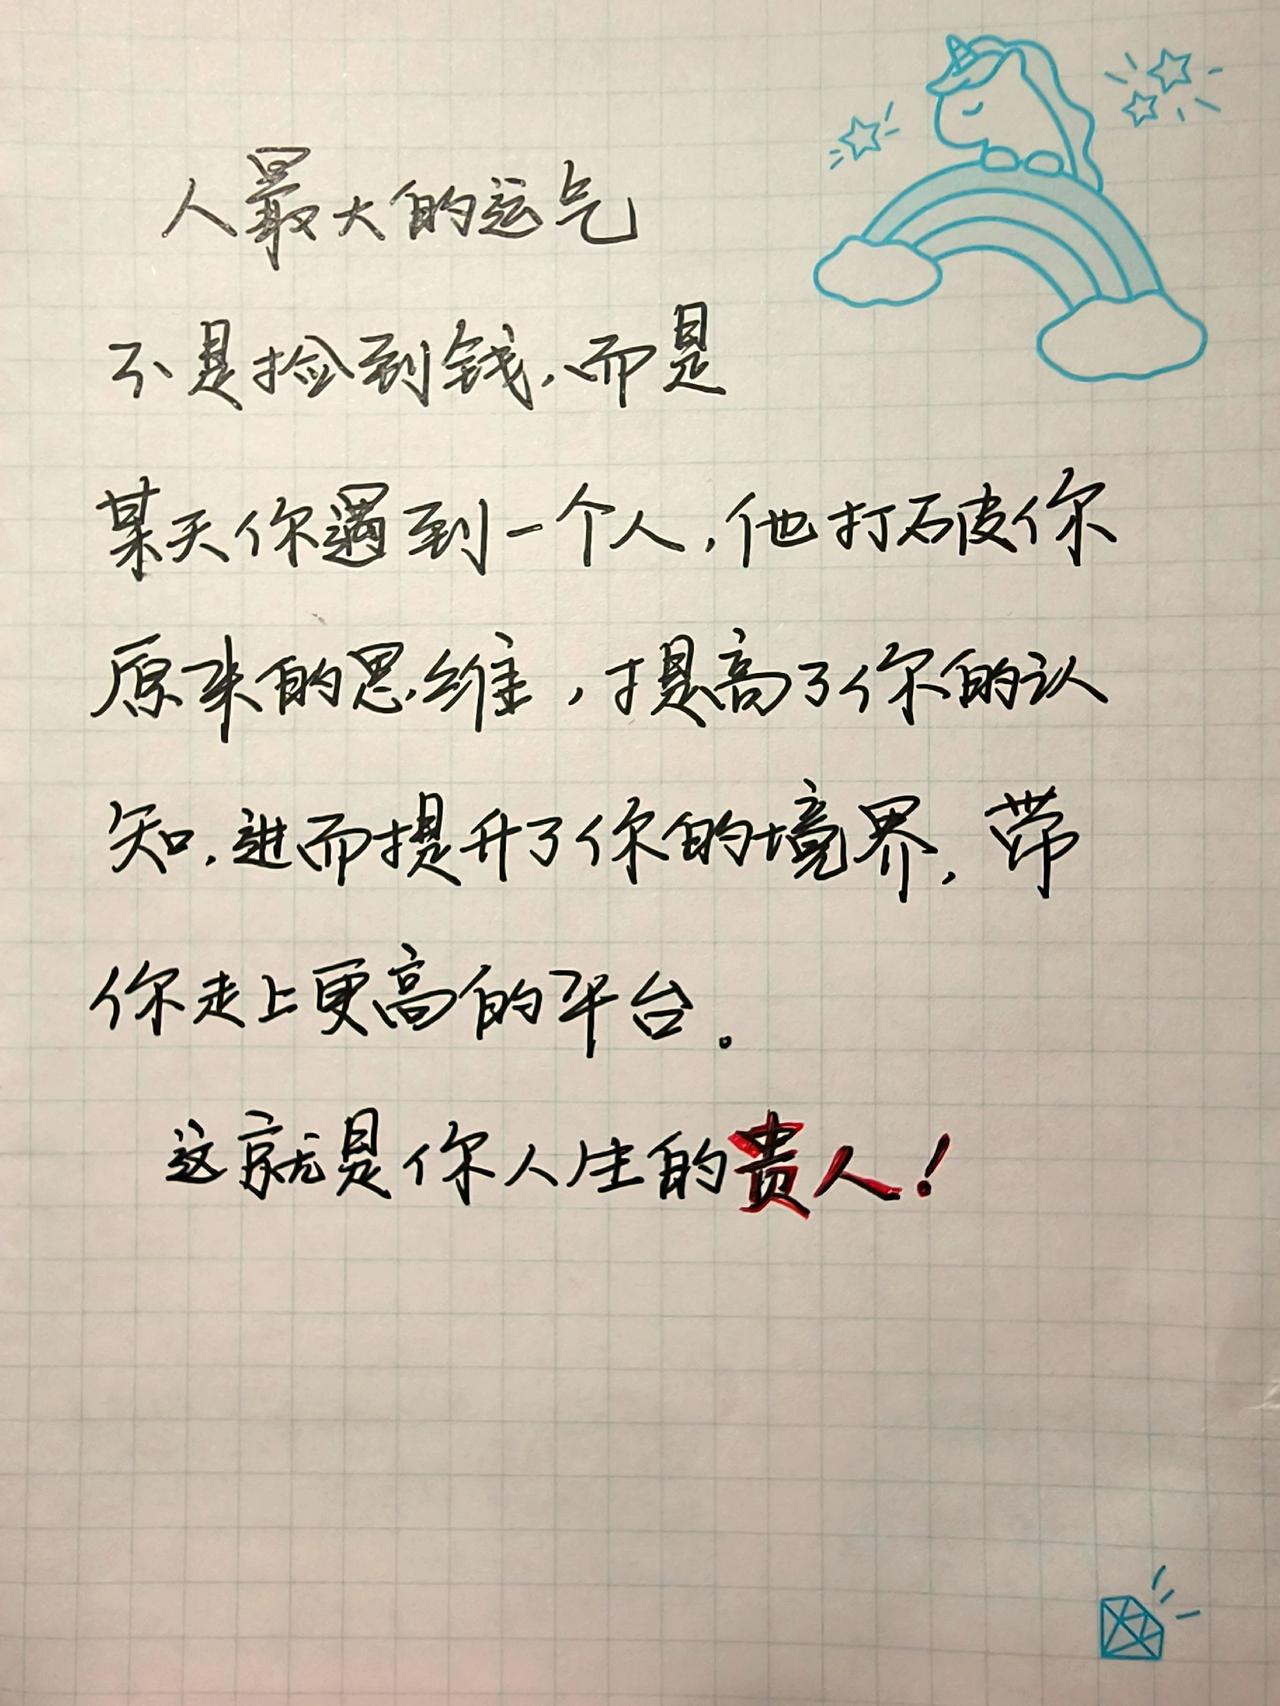 人最大的运气
不是捡到钱,而是
某天你遇到一个人,他打破你
原来的思维,提高了你的认
知,进而提升了你的境界,带
你走上更高的平台。
这就是你人生的贵人!